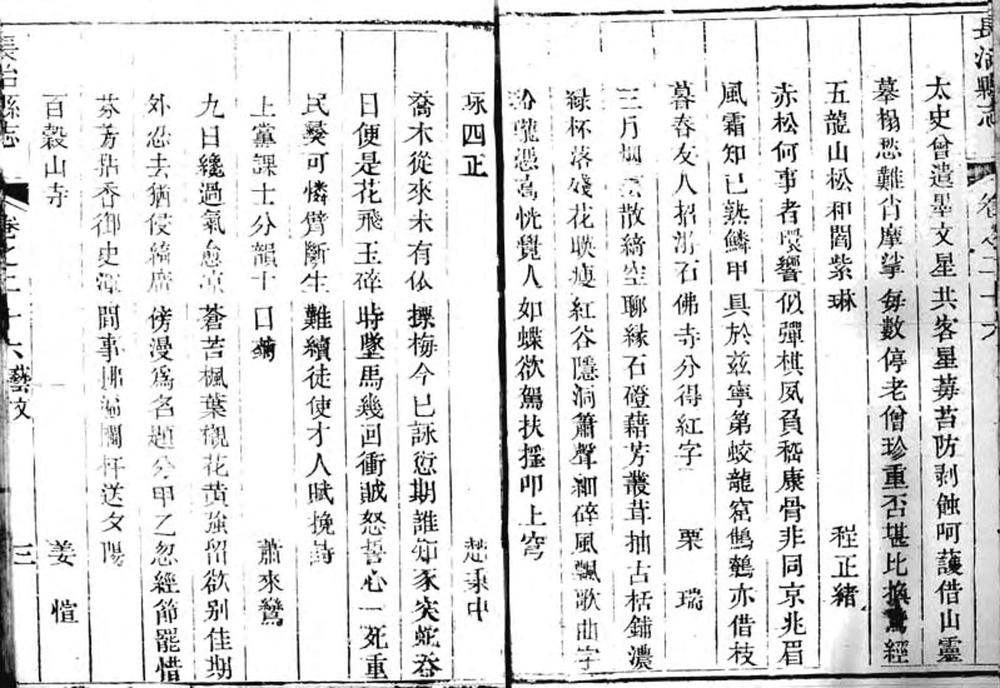 長治縣志
卷之二十六
太史曾遺墨文星共客星莓苔防剥蝕呵護借山靈
摹搨愁難肖摩挲每數停老僧珍重否堪比換鵞經
五龍山松和閻紫琳 程正緒
赤松何事者環響似彈棋夙負嵇康骨非同京兆眉
風霜知已熟鱗甲具於兹寧第蛟龍窟鷦鷯亦借枝
暮春友人招游石佛寺分得紅字 栗瑞
三月烟雲散綺空聊緣石磴藉芳叢茸抽古栝鋪濃
綠杯落殘花映瘦紅谷隱洞簫聲細碎風飄歌曲字
瓏憑高恍覺人如蝶欲駕扶摇叩上穹
咏四正 趙秉中
喬木從來未有依摽梅今已詠愆期誰知豕突蛇吞
日便是花飛玉碎時墜馬幾回衝賊怒誓心一死重
民彝可憐臂斷生難續徒使才人賦挽詩
上黨課士分韻十日菊 蕭來鸞
九日纔過氣愈凉蒼苔楓葉襯花黄強留欲别佳期
外忍去猶侵綺席傍漫爲名題分甲乙忽經節罷惜
芬芳拈香御史渾閒事拂遍闌杆送夕陽
百榖山寺 姜愃
長治縣志
卷之二十六 藝文
三